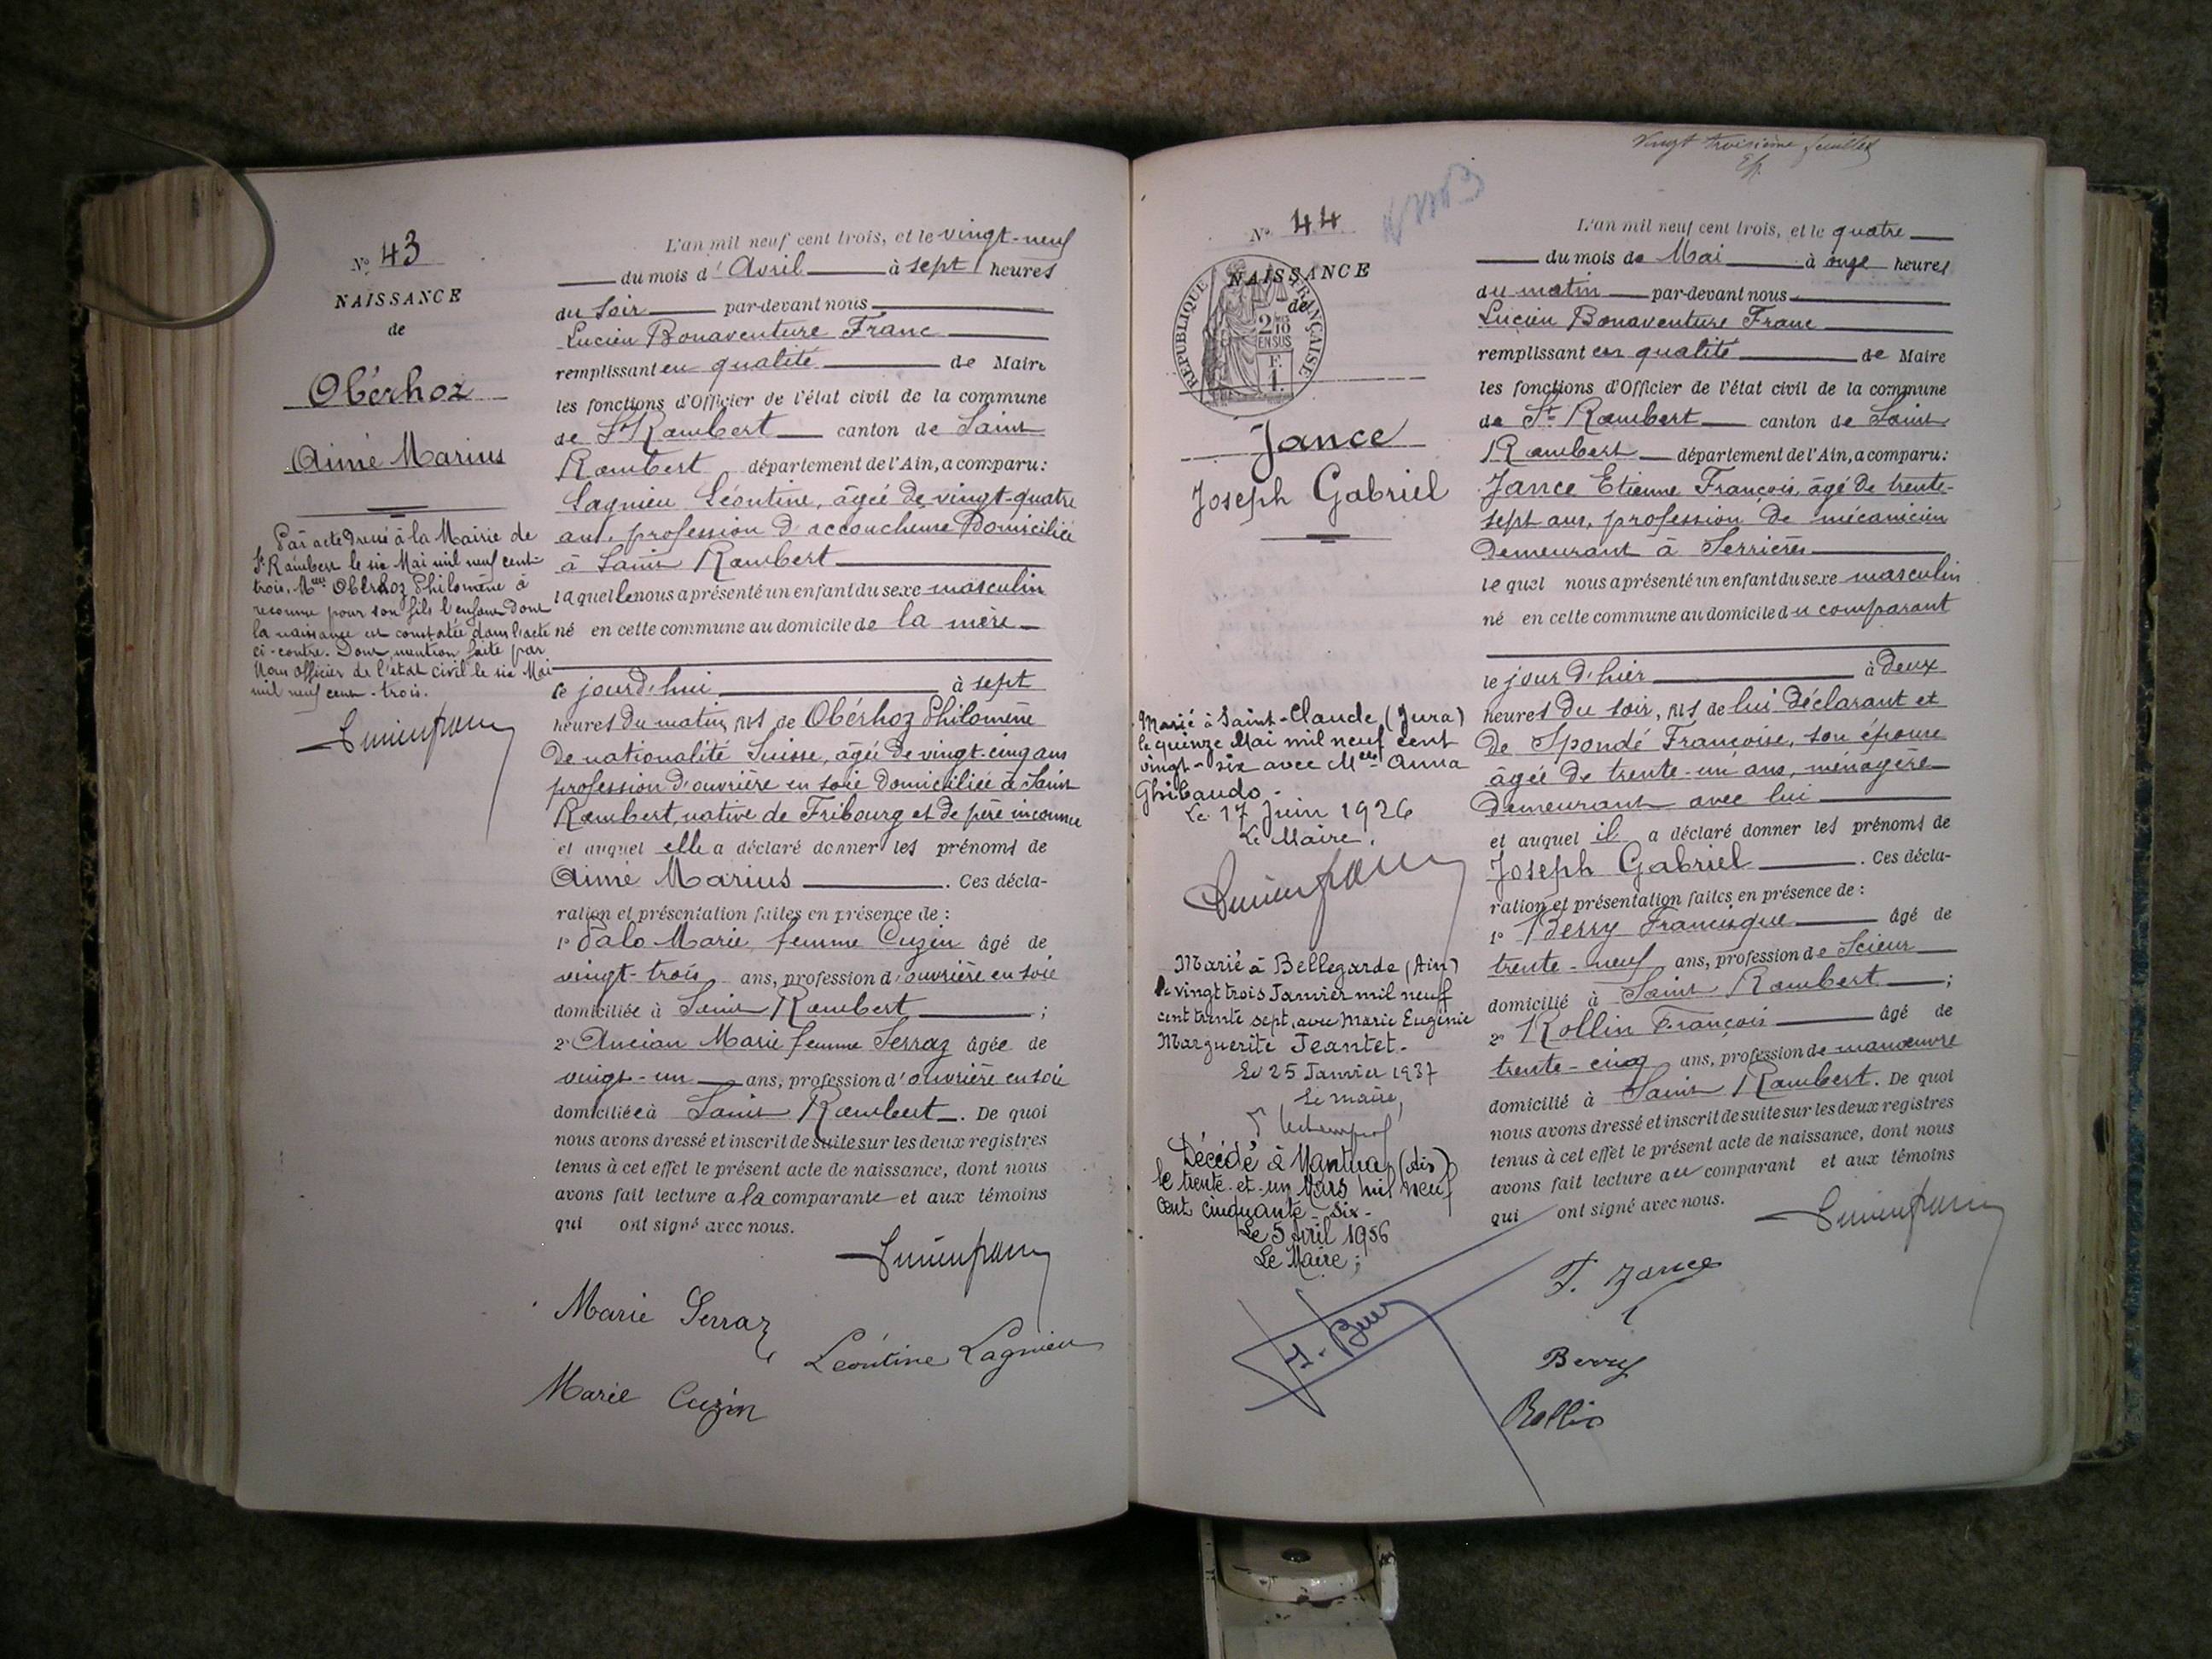 Nº 43
NAISSANCE
de
Obérhoz
Aimé Marius
Par acte dressé à la Mairie de
St Rambert le six Mai mil neuf cent-
trois, Mme Obérhoz Philomène a
reconnu pour son fils l'enfant dont
la naissance est constatée dans l'acte
ci-contre. Dont mention faite par
Nous Officier de l'état civil le six Mai
mil neuf cent-trois.
L'an mil neuf cent trois, et le vingt-neuf
du mois d'Avril à sept heures
du soir par-devant nous
Lucien Bonaventure Franc
remplissant en qualité de Maire
les fonctions d'Officier de l'état civil de la commune
de St Rambert canton de Saint
Rambert département de l'Ain, a comparu:
Lagnieu Léontine, âgée de vingt-quatre
ans, profession d'accoucheuse domiciliée
à Saint Rambert
laquelle nous a présenté un enfant du sexe masculin
né en cette commune au domicile de la mère
le jourd'hui à sept
heures du matin, fils de Obérhoz Philomène
de nationalité Suisse, âgée de vingt-cinq ans
profession d'ouvrière en soie domiciliée à Saint
Rambert, native de Fribourg et de père inconnu
et auquel elle a déclaré donner les prénoms de
Aimé Marius . Ces décla-
ration et présentation faites en présence de :
1º Palo Marie femme Cuzin âgé de
vingt-trois ans, profession d'ouvrière en soie
domiciliée à Saint Rambert ;
2º Ancian Marie femme Serraz âgée de
vingt-un ans, profession d'ouvrière en soie
domiciliée à Saint Rambert . De quoi
nous avons dressé et inscrit de suite sur les deux registres
tenus à cet effet le présent acte de naissance, dont nous
avons fait lecture a la comparante et aux témoins
qui ont signé avec nous.
Marie Serraz
Léontine Lagnieu
Marie Cuzin
Vingt troisième feuillet
Nº 44
NAISSANCE
de
RÉPUBLIQUE FRANÇAISE
2/10
EN SUS
F.
1.
Jance
Joseph Gabriel
Marié à Saint-Claude (Jura)
le quinze Mai mil neuf cent
vingt-six avec Melle Anna
Ghibaudo.
Le 17 Juin 1926
Le Maire,
Marié à Bellegarde (Ain)
le vingt trois Janvier mil neuf
cent trente sept, avec Marie Eugénie
Marguerite Jeantet.
Le 25 Janvier 1937
Le maire,
Décédé à Nantua (Ain)
le trente et un Mars mil neuf
cent cinquante-six-
Le 5 Avril 1956
Le Maire ;
L'an mil neuf cent trois, et le quatre
du mois de Mai à onze heures
du matin par-devant nous
Lucien Bonaventure Franc
remplissant en qualité de Maire
les fonctions d'Officier de l'état civil de la commune
de St Rambert canton de Saint
Rambert département de l'Ain, a comparu:
Jance Etienne François, âgé de trente-
sept ans, profession de mécanicien
demeurant à Serrières
lequel nous a présenté un enfant du sexe masculin
né en cette commune au domicile du comparant
le jour d'hier à deux
heures du soir, fils de lui déclarant et
de Spondé Françoise, son épouse
âgée de trente-un ans, ménagère
demeurant avec lui
et auquel il a déclaré donner les prénoms de
Joseph Gabriel . Ces décla-
ration et présentation faites en présence de :
1º Berry Francisque âgé de
trente-neuf ans, profession de Scieur
domicilié à Saint Rambert ;
2º Rollin François âgé de
trente-cinq ans, profession de manœuvre
domicilié à Saint Rambert. De quoi
nous avons dressé et inscrit de suite sur les deux registres
tenus à cet effet le présent acte de naissance, dont nous
avons fait lecture au comparant et aux témoins
qui ont signé avec nous.
F. Jance
Berry
Rollin